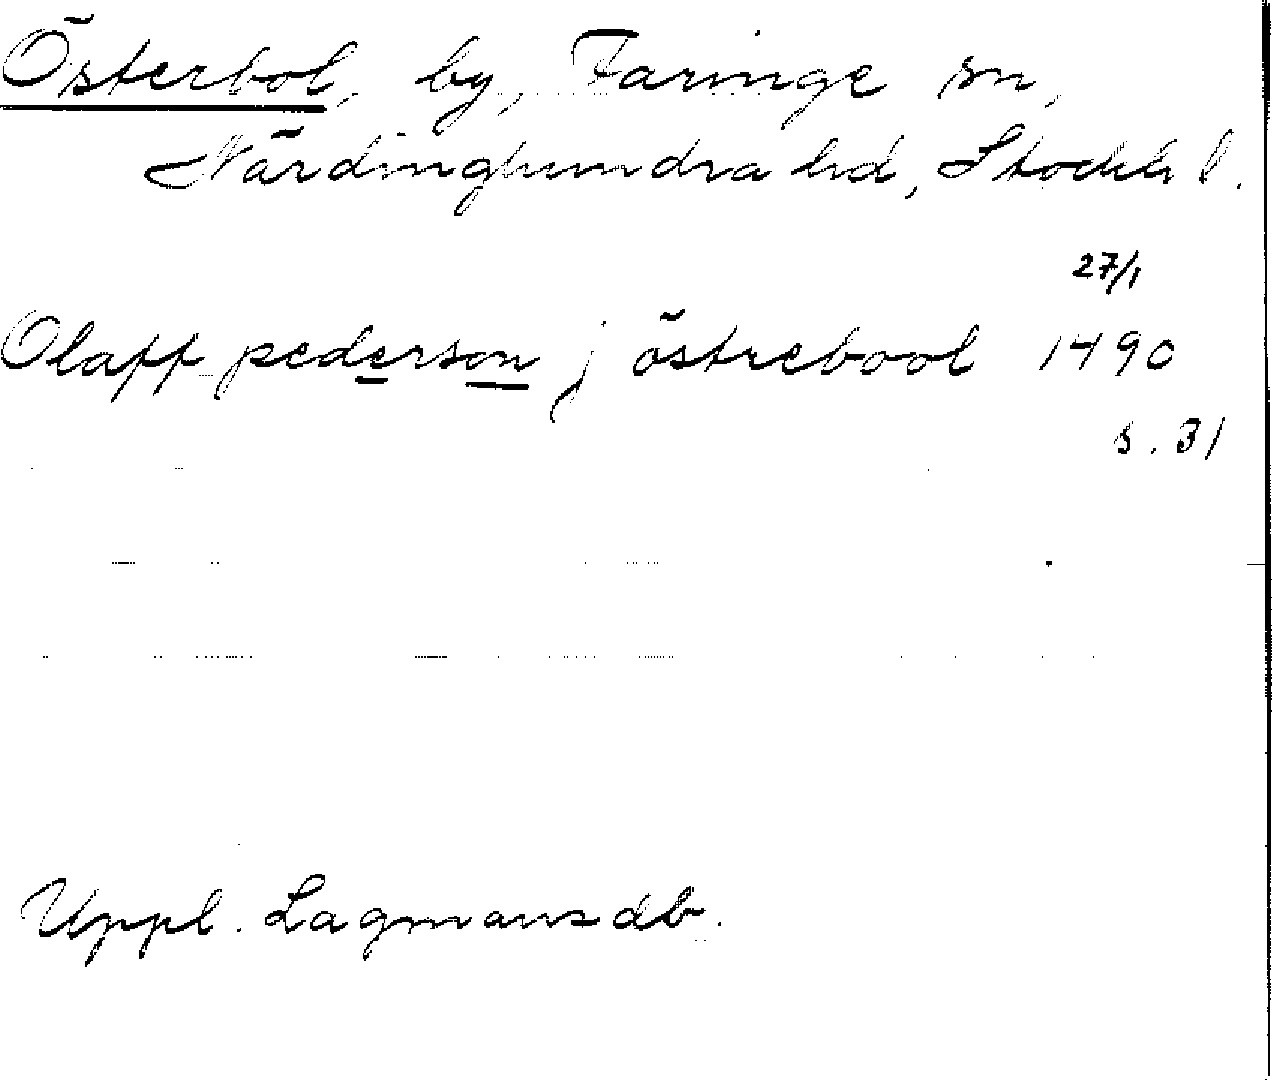 Österbol, by, Faringe sn,
Närdinghundra hd, Stockh l.
27/1
Olaff pederson j östrebool 1490
s. 31
Uppl. Lagmansdb.